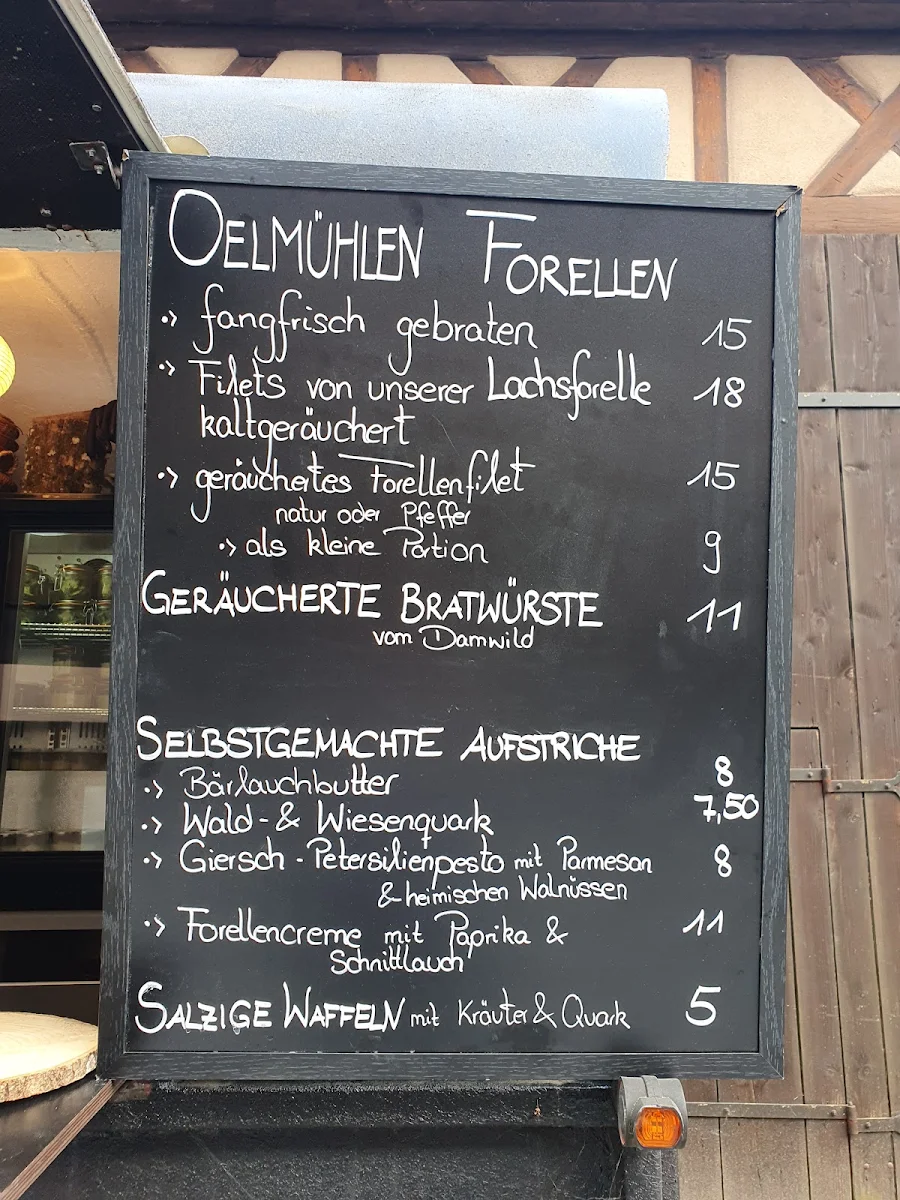 OELMÜHLEN FORELLEN
fangfrisch gebraten 15
Filets von unserer Lachsforelle 18
kaltgeräuchert
geräuchertes Forellenfilet 15
natur oder Pfeffer
als kleine Portion 9
GERÄUCHERTE BRATWÜRSTE 11
vom Damwild
SELBSTGEMACHTE AUFSTRICHE
Bärlauchbutter 8
Wald- & Wiesenquark 7,50
Giersch - Petersilienpesto mit Parmesan 8
& heimischen Walnüssen
Forellencreme mit Paprika & 11
Schnittlauch
SALZIGE WAFFELN mit Kräuter & Quark 5